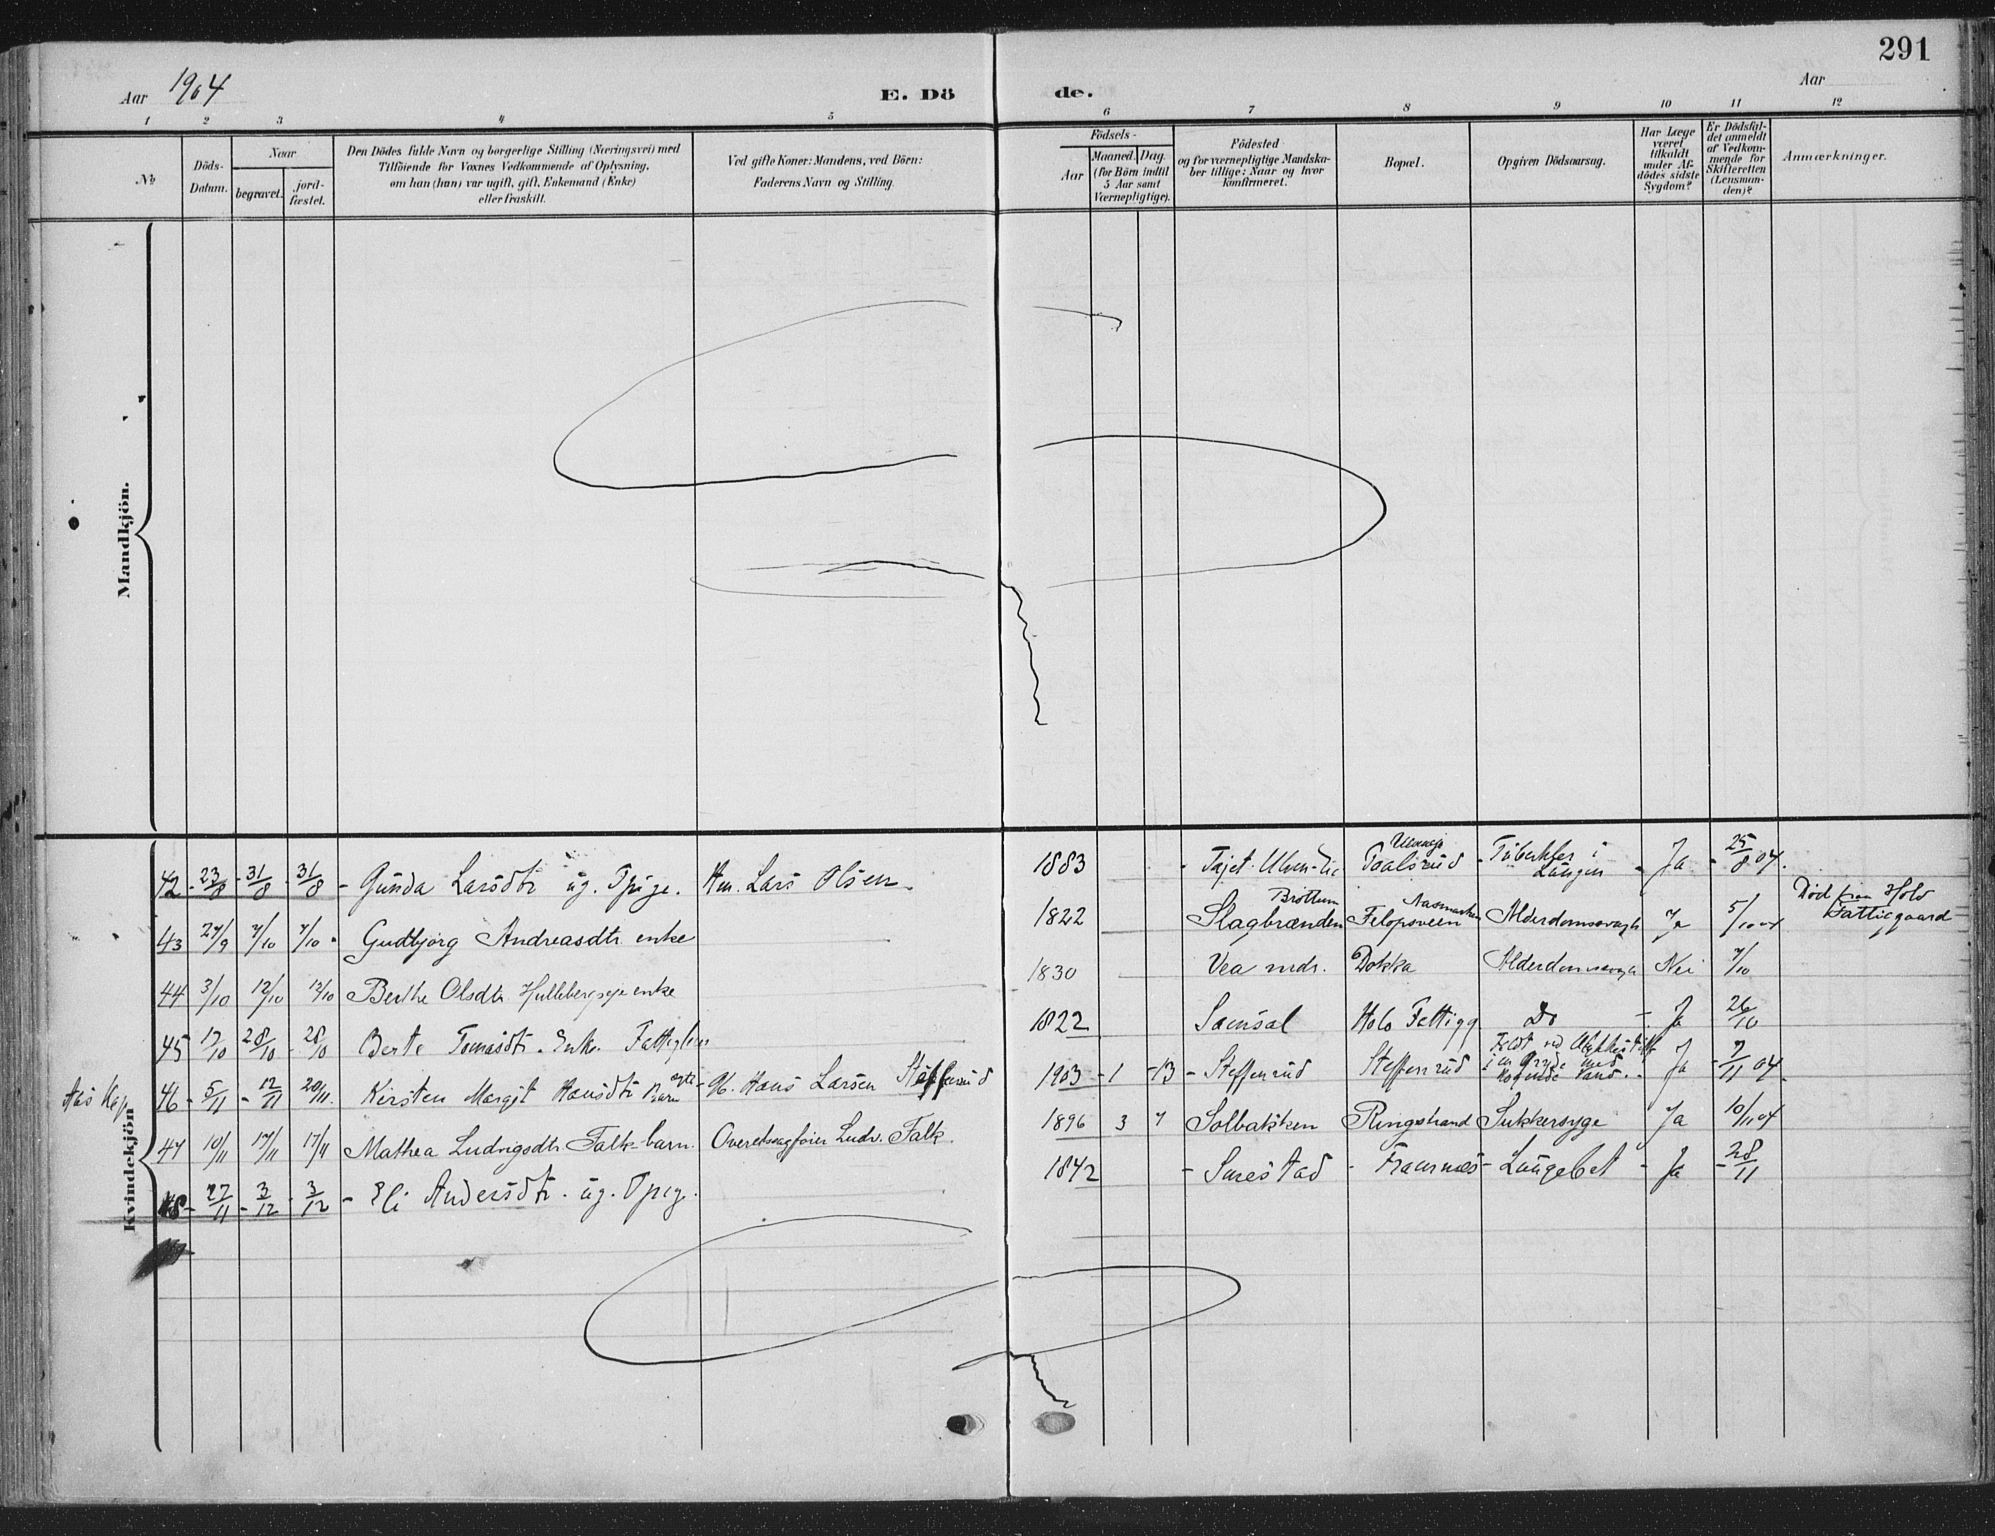 291
Aar 1904
E. Dö
de.
Aar
1 2 3 4 5 6 7 8 9 10 11 12
No
Döds-
Datum.
Naar
begravet.
jord-
fæstet.
Den Dödes fulde Navn og borgerlige Stilling (Næringsvei) med
Tilföiende for Voxnes Vedkommende af Oplysning,
om han (hun) var ugift, gift, Enkemand (Enke)
eller fraskilt.
Ved gifte Koner: Mandens, ved Börn:
Faderens Navn og Stilling.
Födsels-
Aar
Maaned. Dag.
(for Börn indtil
5 Aar samt
Værnepligtige).
Födested
og for værnepligtige Mandska-
ber tillige: Naar og hvor
konfirmeret.
Bopæl.
Opgiven Dödsaarsag.
Har Læge
været
tilkaldt
under Af-
dödes sidste
Sygdom?
Er Dödsfal-
det anmeldt
af Vedkom-
mende for
Skifteretten
(Lensman-
den)?
Anmærkninger.
Mandkjön.
Kvindekjön
42 - 23/8 - 31/8 - 31/8 - Gunda Larsdtr ug. Pige. Hm. Lars Olsen. 1883 - Ja - 25/8 04.
43 27/9 7/10 7/10 Gudbjörg Andreasdtr enke 1822 Slagbrænden Brøttum Alderdomssvagh Ja 5/10 04 Død fra Holo Fattiggaard
44 3/10 12/10 12/10 Berthe Olsdtr enke 1830 Vea nrdr. Dokka Alderdomssvagh Nei 7/10
45 17/10 28/10 - 28/10 Berte Tomasdtr. Enke. 1822 Holo Fattigg Do - Ja 26/10
Aas Kap
46 - 5/11 - 12/11 20/11. Kirsten Margit Hansdtr ægte Barn - Gb. Hans Larsen Steffenrud 1903 - 1 - 13 - Steffenrud Steffenrud Født ved i en Gryde med kogende Vand. - Ja - 7/11 04.
47 10/11 17/11 17/11 Mathea Ludvigsdtr Falk - barn. Overretssagfører Ludv. Falk. 1896 3 7 Solbakken Ringstrand Sukkersyge Ja 10/11 04
48 - 27/11 - 3/12 - 3/12 - Eli Andersdtr. ug. Pige. 1842 - - - Ja - 28/11